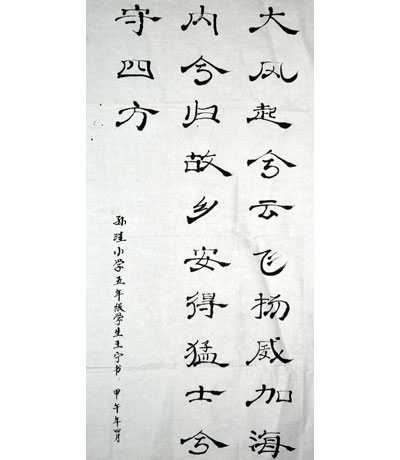 大风起兮云飞扬威加海
内兮归故乡安得猛士兮
守四方
孙洼小学五年级学生王宁书 甲午年四月